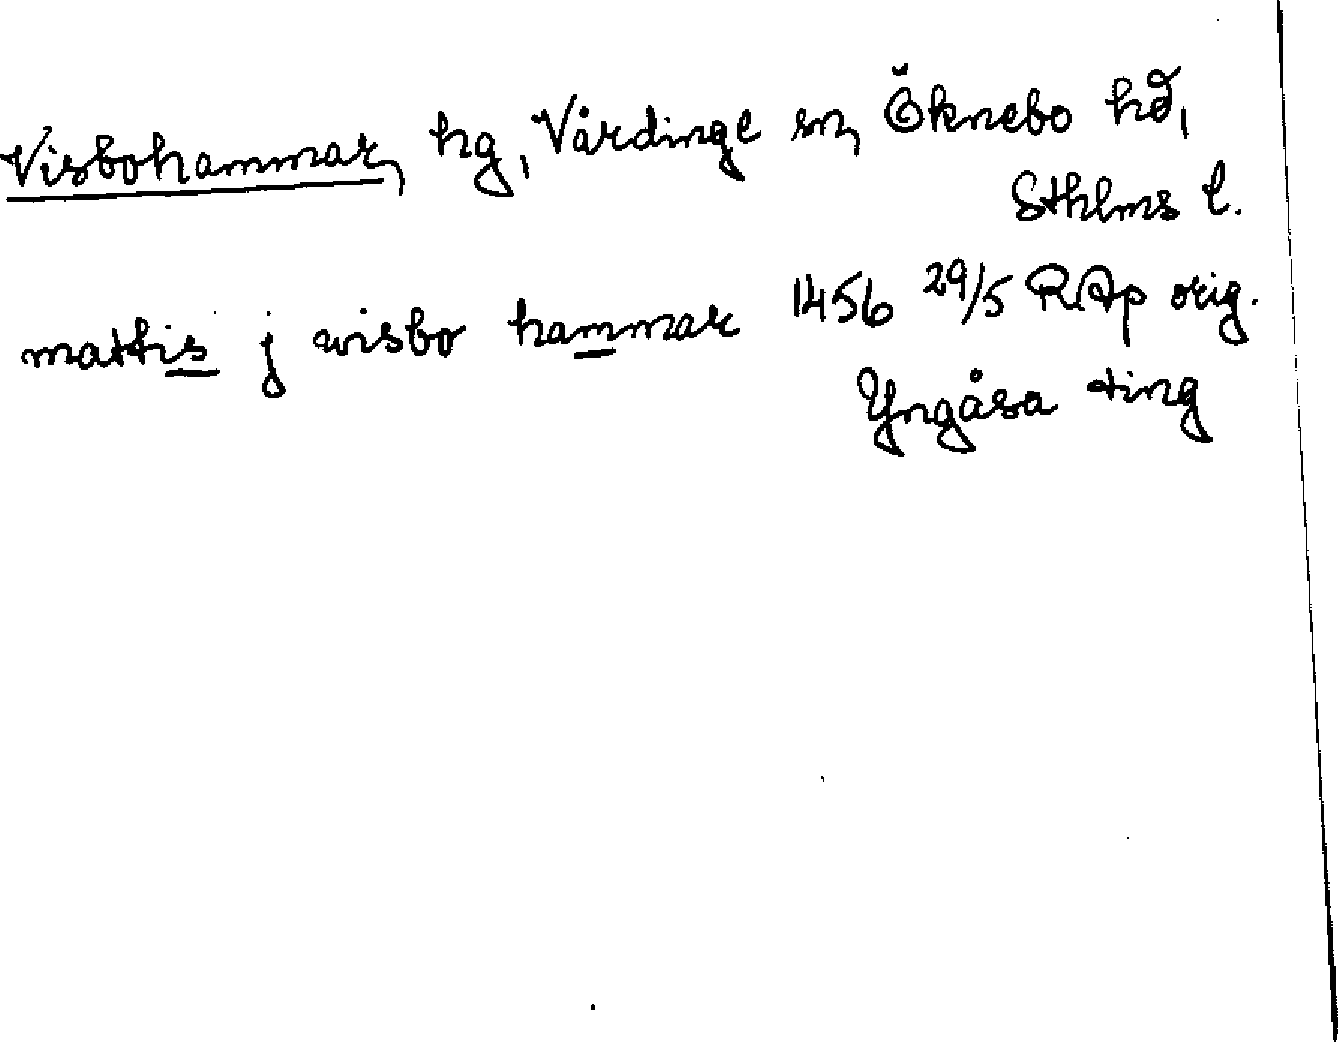 Visbohammar, hg, Vårdinge sn, Öknebo hd,
Sthlms l.
mattis j wisbo hammar 1456 29/5 RAp orig.
Yngåsa ting